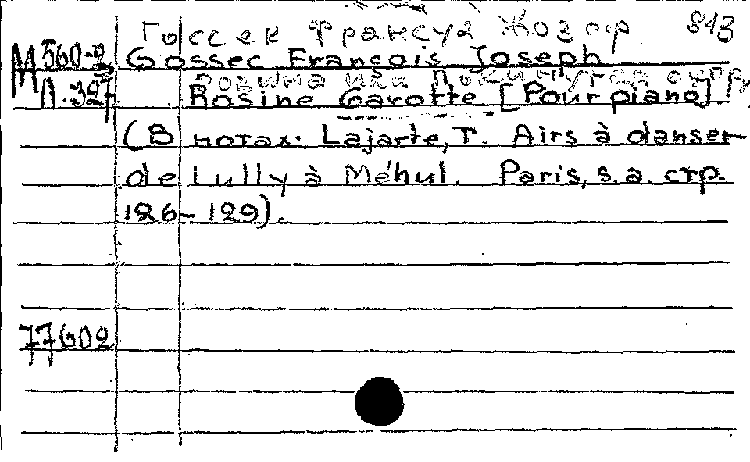 Госсек Франсуа Жозеф 813
М 560-2 Gossec François Joseph
Розина или Покинутая супру
Л. 327 Rosine Gavotte [Pour piano].
(В нотах. Lajarte, T. Airs à danser
de Lully à Méhul. Paris, s. a. стр.
126-129).
77602